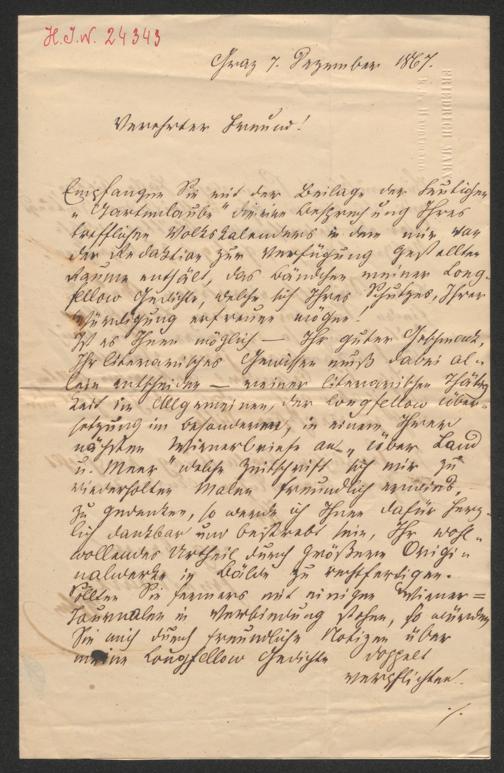 H.I.N. 24343
Graz 7. Dezember 1867.
Verehrter Freund!
Empfangen Sie mit der Beilage der heutigen
„Gartenlaube" die eine Besprechung Ihres
trefflichen Volkskalenders in dem mir von
der Redaktion zur Verfügung gestellten
Raume enthält, das Bändchen meiner Long-
fellow Gedichte, welche sich Ihres Schutzes, Ihrer
Würdigung erfreuen mögen!
Ist es Ihnen möglich — Ihr guter Geschmack,
Ihr literarisches Gewissen muß dabei al-
lein entscheiden — meiner literarischen Thätig-
keit im Allgemeinen, der Longfellow Über-
setzung im besonderen, in einem Ihrer
nächsten Wienerbriefe an „Über Land
u. Meer" welche Zeitschrift sich mir zu
wiederholten Malen freundlich erwies,
zu gedenken, so werde ich Ihnen dafür herz-
lich dankbar und bestrebt sein, Ihr wohl-
wollendes Urtheil durch größere Origi-
nalwerke in Bälde zu rechtfertigen.
Sollten Sie ferners mit einigen Wiener=
Journalen in Verbindung stehen, so würden
Sie mich durch freundliche Notizen über
meine Longfellow Gedichte doppelt
verpflichten!
./.